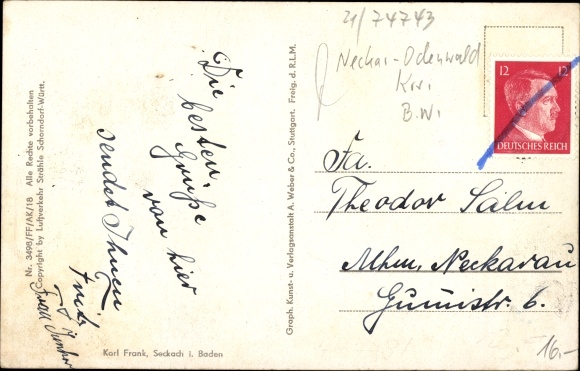 21/74743
Neckar-Odenwald
Krs.
B.W.
12 12
DEUTSCHES REICH
Fa.
Theodor Salm
Mhm. Neckarau
Gumistr. 6.
16,-
Die
besten
Grüße
von hier
sendet Ihnen
Karl Frank, Seckach i. Baden
Nr. 3498/FF/AK/18 Alle Rechte vorbehalten
Copyright by Luftverkehr Strähle Schorndorf-Württ.
Graph. Kunst- u. Verlagsanstalt A. Weber & Co., Stuttgart. Freig. d. R.L.M.